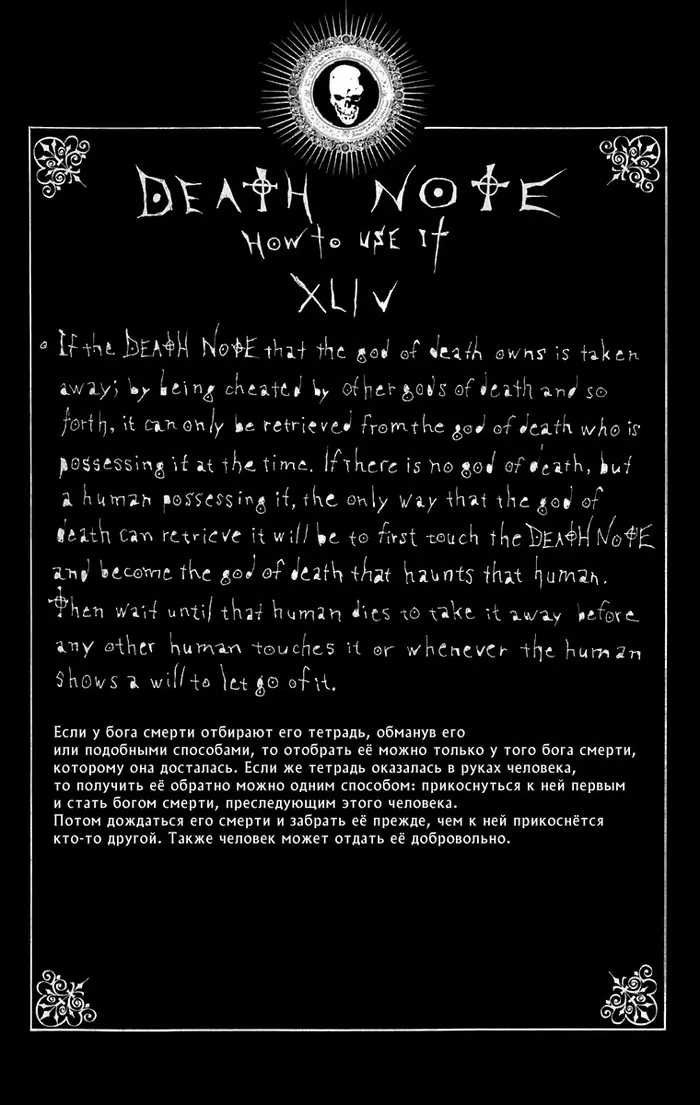 DEATH NOTE
HOW to USE It
XLIV
If the DEATH NOTE that the god of death owns is taken
away; by being cheated by other gods of death and so
forth, it can only be retrieved from the god of death who is
possessing it at the time. If there is no god of death, but
a human possessing it, the only way that the god of
death can retrieve it will be to first touch the DEATH NOTE
and become the god of death that haunts that human.
Then wait until that human dies to take it away before
any other human touches it or whenever the human
shows a will to let go of it.
Если у бога смерти отбирают его тетрадь, обманув его
или подобными способами, то отобрать её можно только у того бога смерти,
которому она досталась. Если же тетрадь оказалась в руках человека,
то получить её обратно можно одним способом: прикоснуться к ней первым
и стать богом смерти, преследующим этого человека.
Потом дождаться его смерти и забрать её прежде, чем к ней прикоснётся
кто-то другой. Также человек может отдать её добровольно.